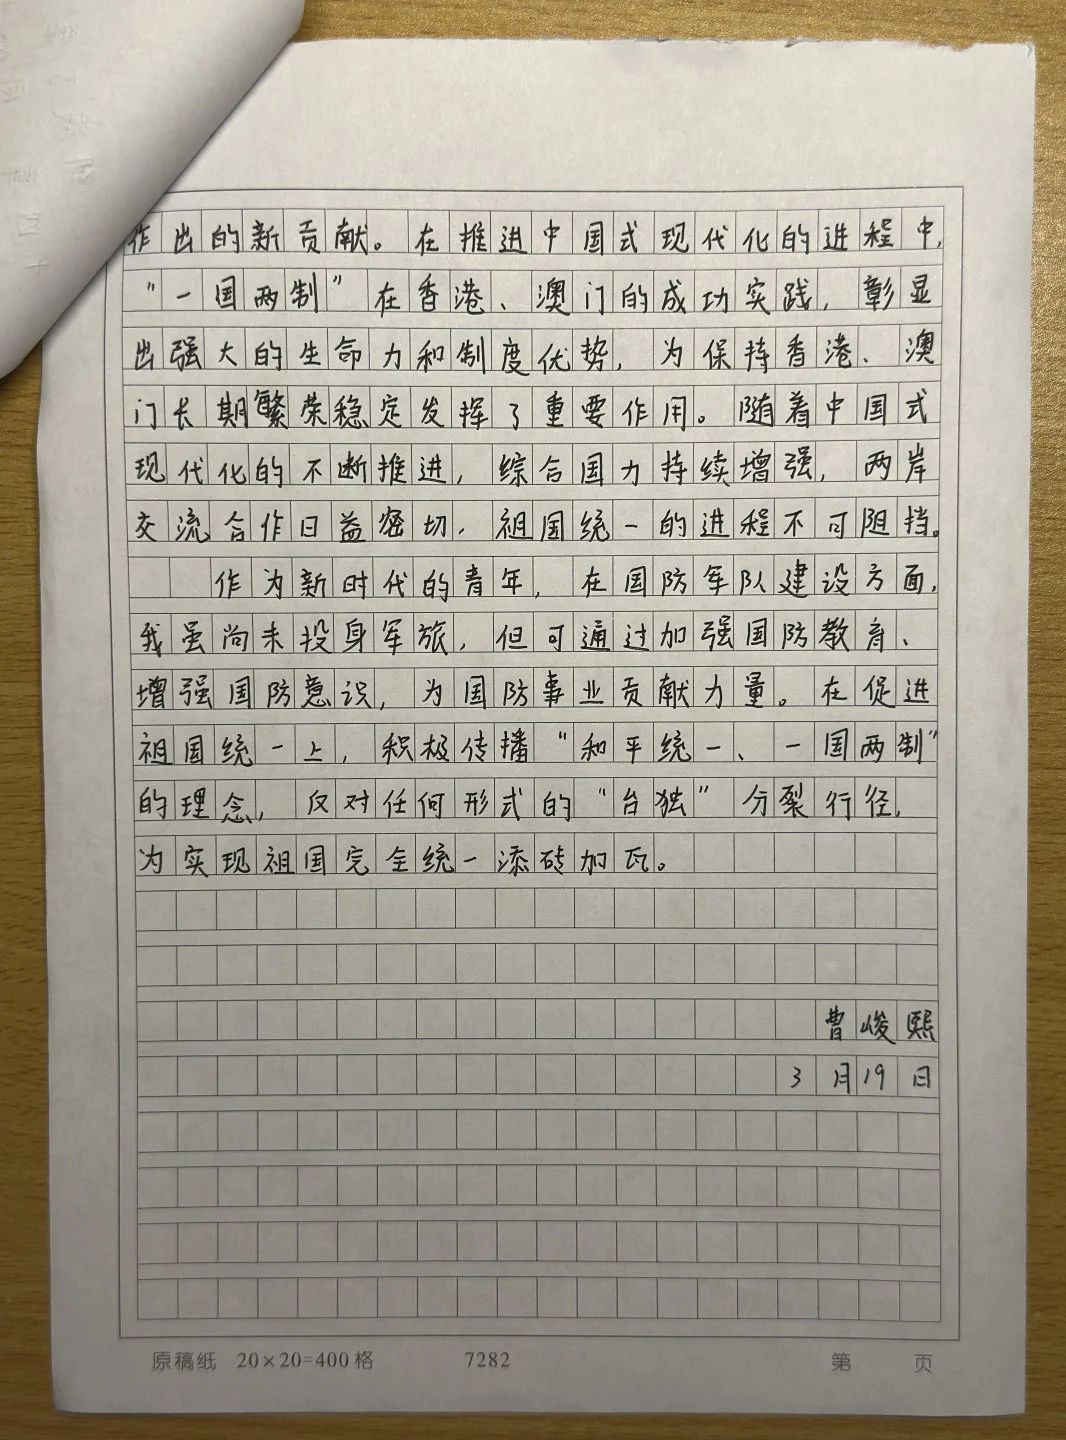 作出的新贡献。在推进中国式现代化的进程中,
“一国两制”在香港、澳门的成功实践,彰显
出强大的生命力和制度优势,为保持香港、澳
门长期繁荣稳定发挥了重要作用。随着中国式
现代化的不断推进,综合国力持续增强,两岸
交流合作日益密切,祖国统一的进程不可阻挡。
作为新时代的青年,在国防军队建设方面,
我虽尚未投身军旅,但可通过加强国防教育、
增强国防意识,为国防事业贡献力量。在促进
祖国统一上,积极传播“和平统一、一国两制”
的理念,反对任何形式的“台独”分裂行径,
为实现祖国完全统一添砖加瓦。
曹峻熙
3月19日
原稿纸 20×20=400格 7282 第 页